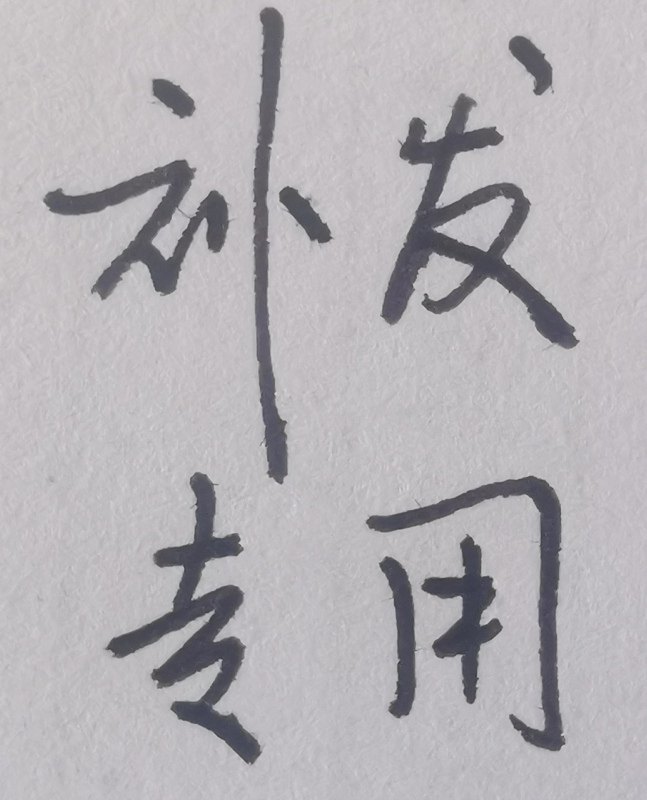 补发
专用